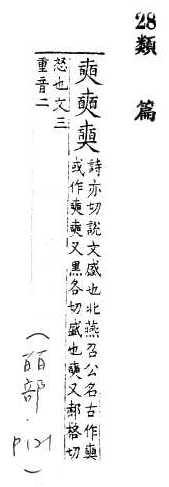 28 類篇
奭奭奭
詩亦切說文盛也北燕召公名古作奭
或作奭奭又黑各切盛也奭又郝格切
怒也文三
重音二
(皕部．P121)